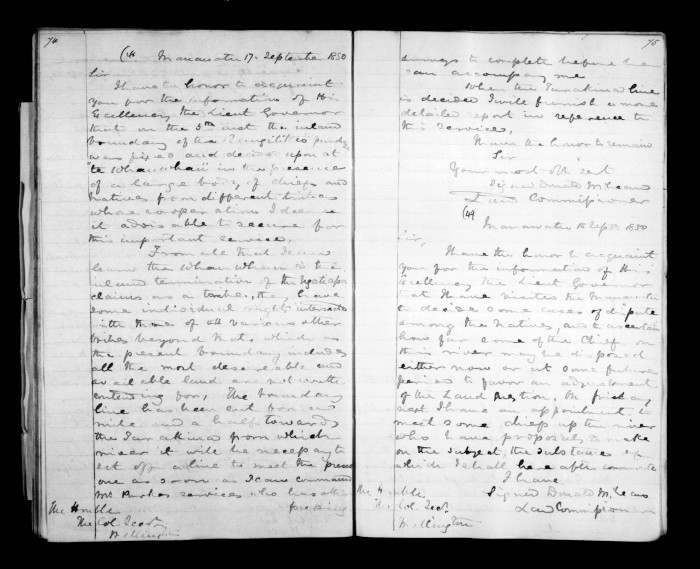 74
Manawatu 17. September 1850
Sir
I have the honor to acquaint
you for the information of His
Excellency the Lieut Governor
that on the 5th inst the inland
boundary of the Rangitikei
was fixed and decided upon at
"te Whaw
in the presence
of a large body of chiefs and
Natives from different tribes
whose cooperation I deem
it advisable to secure for
this important service.
From all that I can
learn the
is the
inland termination of the Ngatiapa
claims as a tribe, they have
some individual rights intersected
with those of various other
tribes beyond that, which as
the present boundary includes
all the most desireable and
available land are not worth
contending for, The boundary
line has been cut for a
mile and a half towards
the Turakina from which
river it will be necessary to
cut off a line to meet the present
one as soon as I can command
Mr Parkes services who has other
pressing
The Honble
The Col. Secty
Wellington
75
surveys to complete before he
can accompany me
When the Turakina line
is decided I will furnish a more
detailed report in reference to
this service.
I have the honor to remain
Sir
Your most obt sert
Signed Donald McLean
Land Commissioner
(49
Manawatu 18 Sep 1850
Sir,
I have the honor to acquaint
you for the information of His
Excellency the Lieut Governor
that I have visited the Manawatu
to decide some cases of dispute
among the Natives, and to ascertain
how far some of the Chiefs on
this river may be disposed
either now or at some future
period to favor an adjustment
of the Land question. On friday
next I have an appointment to
meet some chiefs up the river
who have proposals to make
on the subject, the substance of
which I shall hereafter communicate
I have
Signed Donald McLean
Land Commissioner
The Honble
The Col. Secty
Wellington